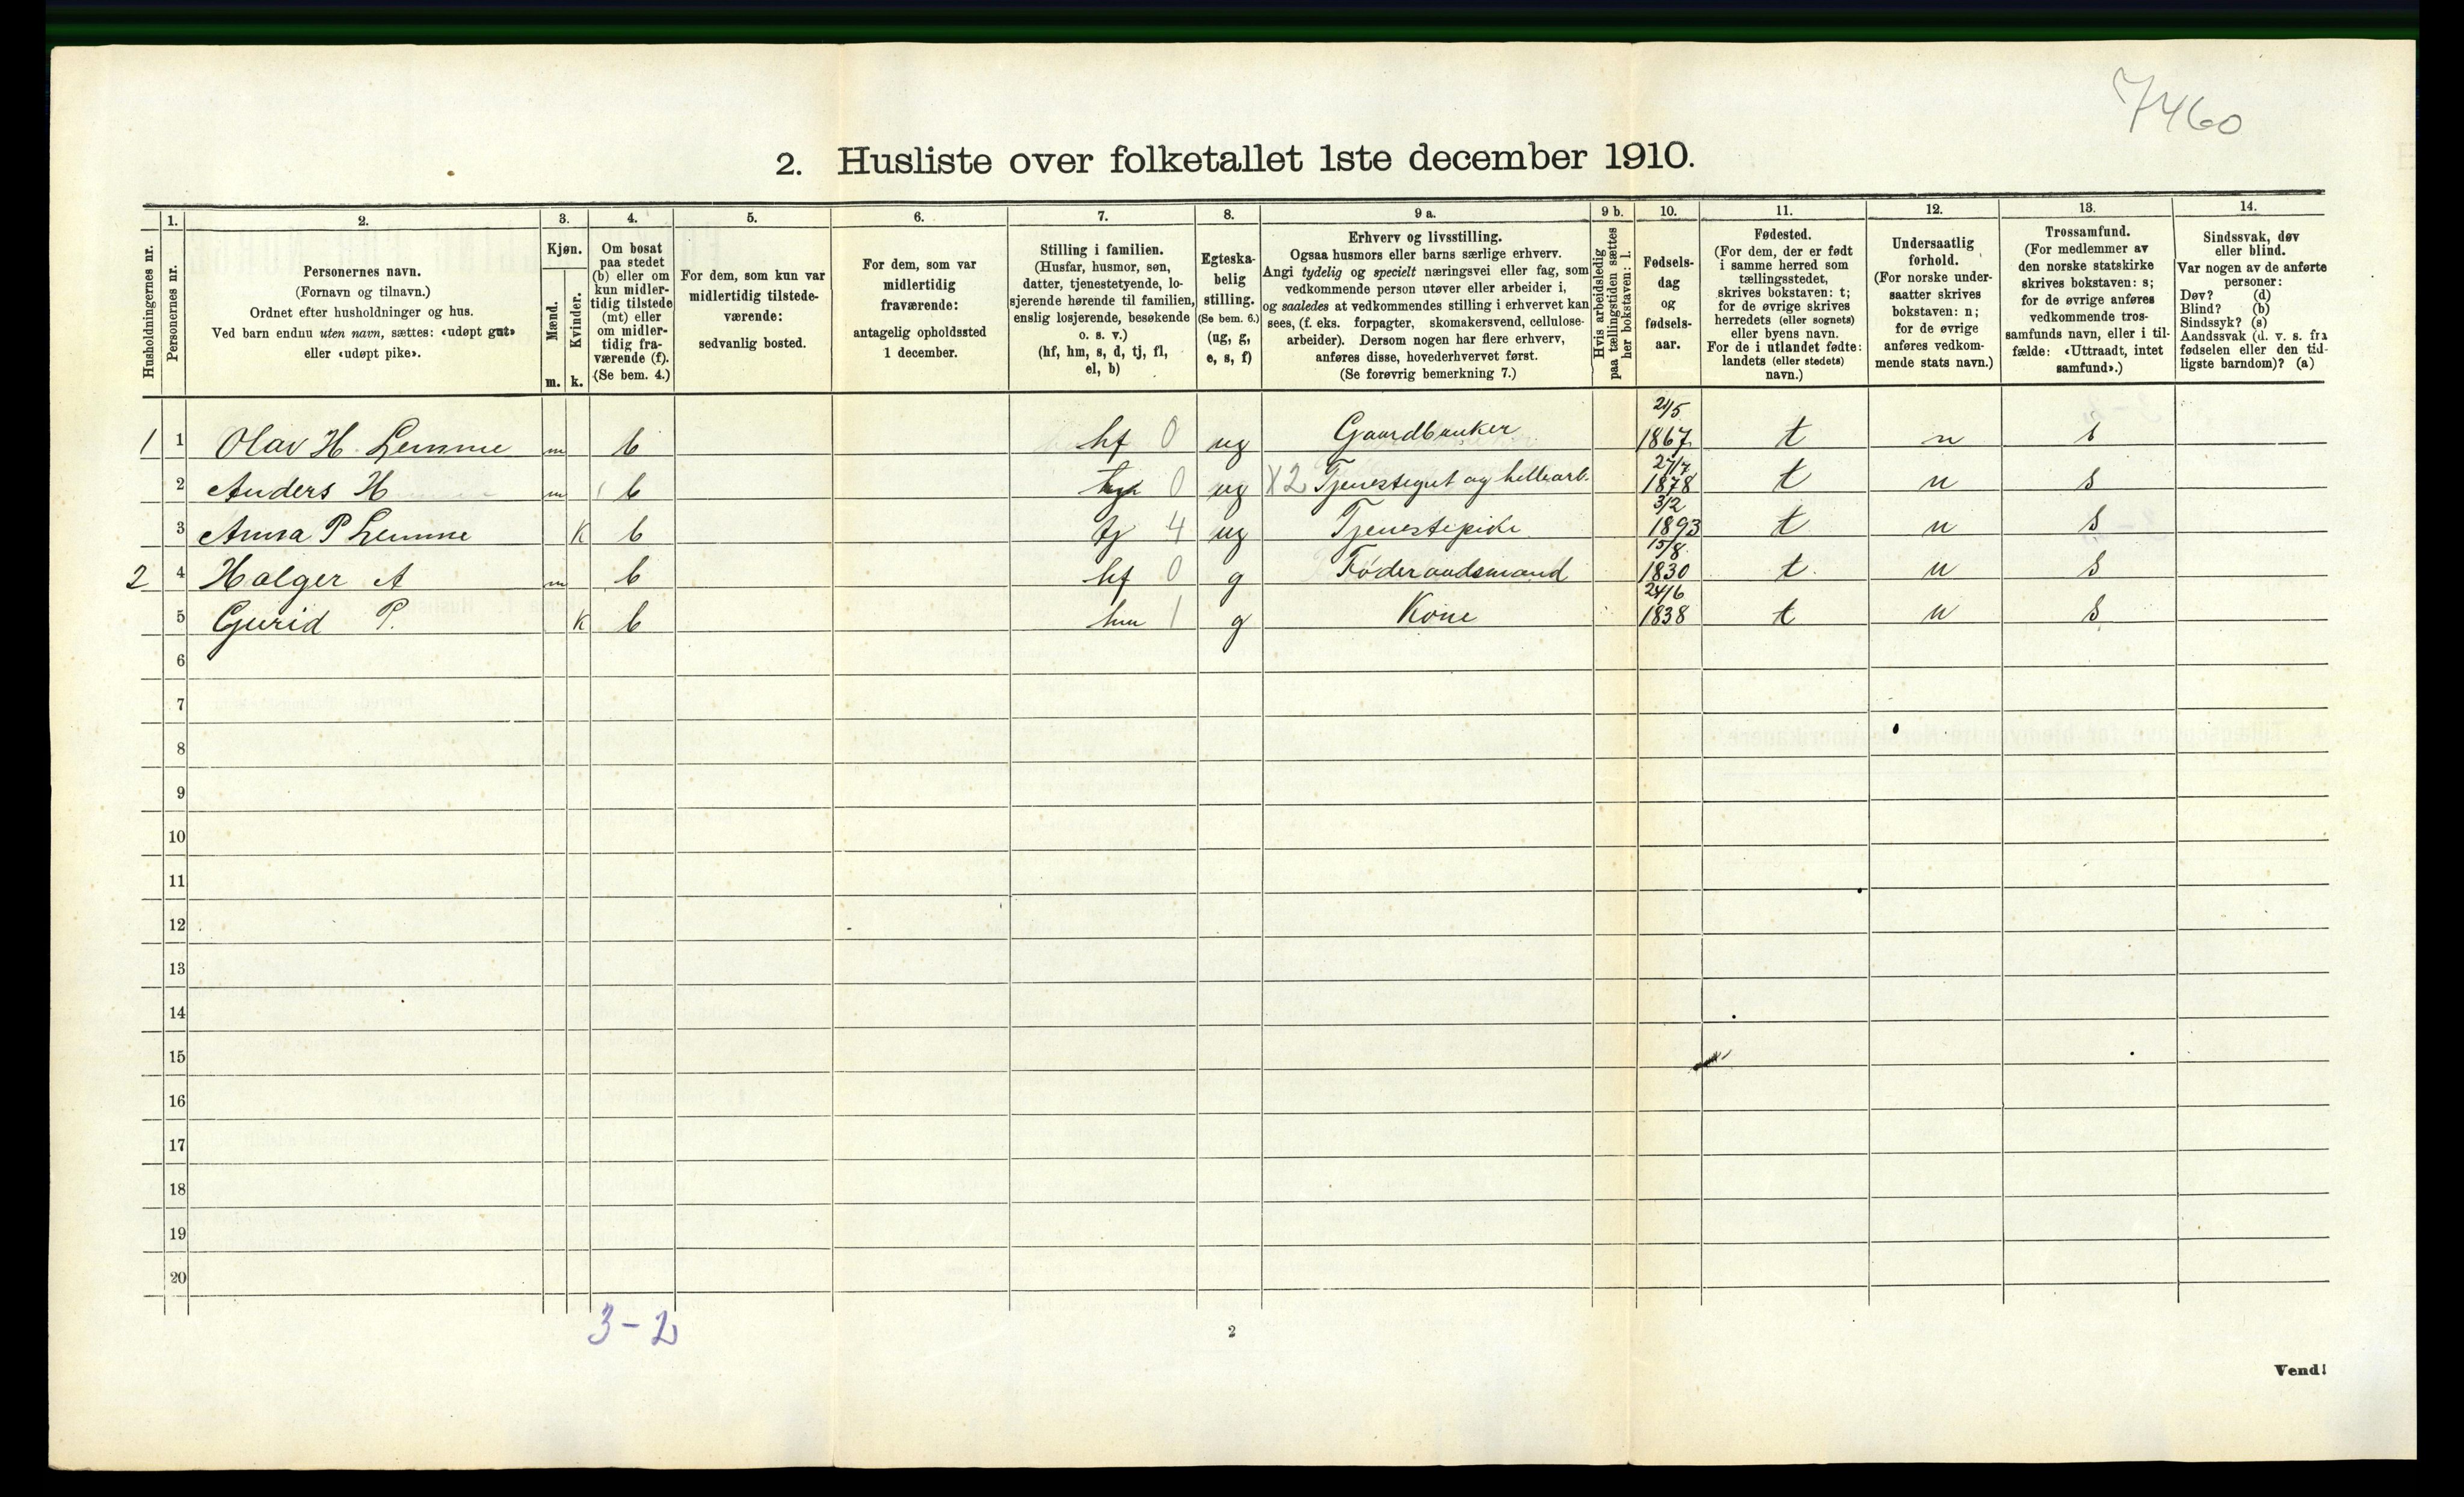 7460
2. Husliste over folketallet 1ste december 1910.
Husholdningernes nr.
1.
Personernes nr.
2.
Personernes navn.
(Fornavn og tilnavn.)
Ordnet efter husholdninger og hus.
Ved barn endnu uten navn, sættes: «udøpt gut»
eller «udøpt pike».
3.
Kjøn.
Mænd.
Kvinder.
m. k.
4.
Om bosat
paa stedet
(b) eller om
kun midler-
tidig tilstede
(mt) eller
om midler-
tidig fra-
værende (f).
(Se bem. 4.)
5.
For dem, som kun var
midlertidig tilstede-
værende:
sedvanlig bosted.
6.
For dem, som var
midlertidig
fraværende:
antagelig opholdssted
1 december.
7.
Stilling i familien.
(Husfar, husmor, søn,
datter, tjenestetyende, lo-
sjerende hørende til familien,
enslig losjerende, besøkende
o. s. v.)
(hf, hm, s, d, tj, fl,
el, b)
8.
Egteska-
belig
stilling.
(Se bem. 6.)
(ug, g,
e, s, f)
9 a.
Erhverv og livsstilling.
Ogsaa husmors eller barns særlige erhverv.
Angi tydelig og specielt næringsvei eller fag, som
vedkommende person utøver eller arbeider i,
og saaledes at vedkommendes stilling i erhvervet kan
sees, (f. eks. forpagter, skomakersvend, cellulose-
arbeider). Dersom nogen har flere erhverv,
anføres disse, hovederhvervet først.
(Se forøvrig bemerkning 7.)
9 b.
Hvis arbeidsledig
paa tællingstiden sættes
her bokstaven: l.
10.
Fødsels-
dag
og
fødsels-
aar.
11.
Fødested.
(For dem, der er født
i samme herred som
tællingsstedet,
skrives bokstaven: t;
for de øvrige skrives
herredets (eller sognets)
eller byens navn.
For de i utlandet fødte:
landets (eller stedets)
navn.)
12.
Undersaatlig
forhold.
(For norske under-
saatter skrives
bokstaven: n;
for de øvrige
anføres vedkom-
mende stats navn.)
13.
Trossamfund.
(For medlemmer av
den norske statskirke
skrives bokstaven: s;
for de øvrige anføres
vedkommende tros-
samfunds navn, eller i til-
fælde: «Uttraadt, intet
samfund».)
14.
Sindssvak, døv
eller blind.
Var nogen av de anførte
personer:
Døv? (d)
Blind? (b)
Sindssyk? (s)
Aandssvak (d. v. s. fra
fødselen eller den tid-
ligste barndom)? (a)
1 1 Olav H. Lemme m b hf 0 ug Gaardbruker 21/5 1867 t n s
2 Anders H m b 0 ug X2 Tjenestegut og hellearb. 27/7 1878 t n s
3 Anna P Lemme k b tj 4 ug Tjenestepike 3/2 1893 t n s
2 4 Holger A m b hf 0 g Føderaadsmand 15/8 1830 t n s
5 Gurid P. k b hm 1 g Kone 24/6 1838 t n s
6
7
8
9
10
11
12
13
14
15
16
17
18
19
20
3-2
2
Vend!